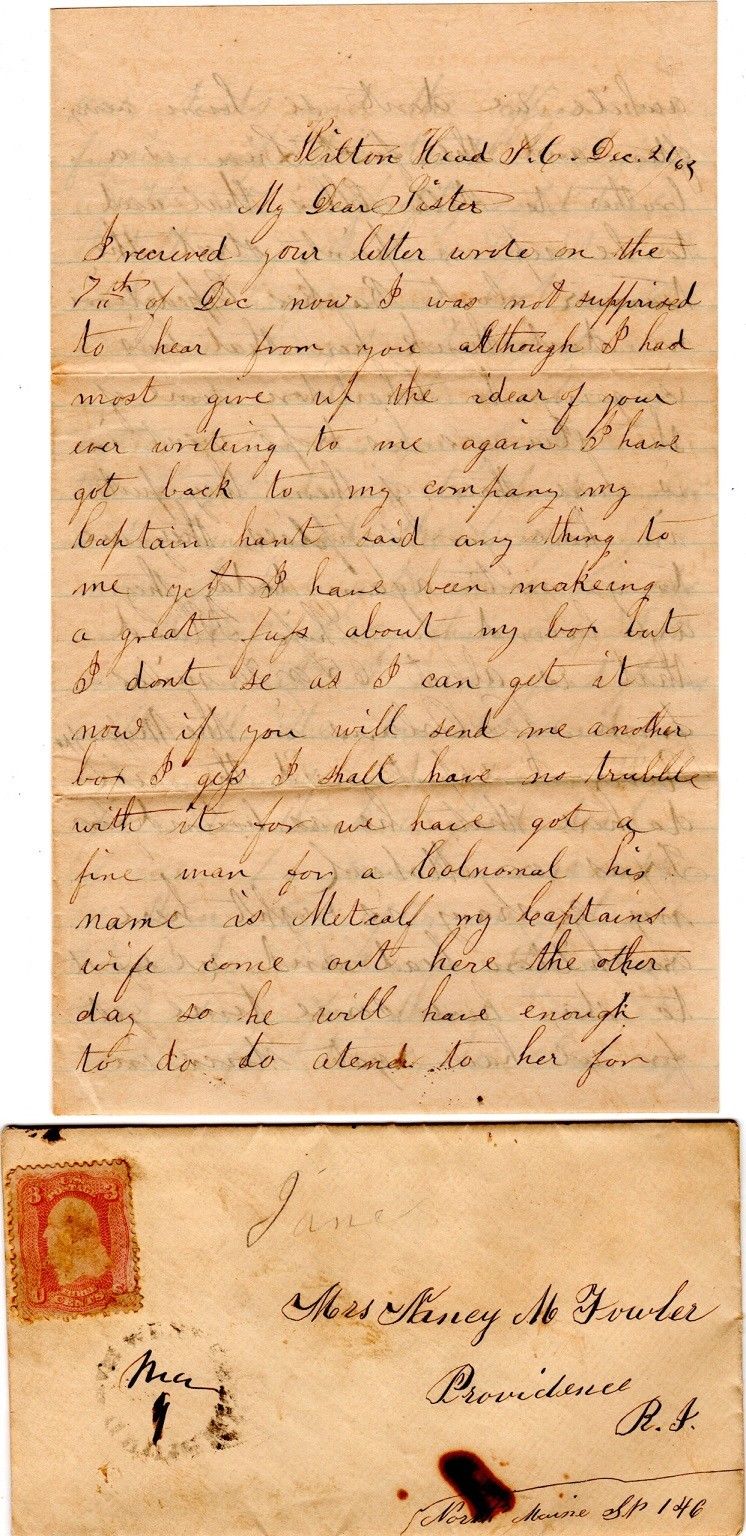 Hilton Head S. C. Dec. 21, 63
My Dear Sister
I recieved your letter wrote on the
7th of Dec now I was not supprised
to hear from you although I had
most give up the idear of your
ever writeing to me again I have
got back to my company my
Captain hant said any thing to
me yet I have been makeing
a great fuss about my box but
I dont se as I can get it
now if you will send me another
box I gess I shall have no trubble
with it for we have got a
fine man for a Colnomal his
name is Metcalf my Captains
wife come out here the other
day so he will have enough
to do to atend to her for
3 3
CENTS
Jane
Mrs Nancy M Fowler
Providence
R. I.
North Maine St 146